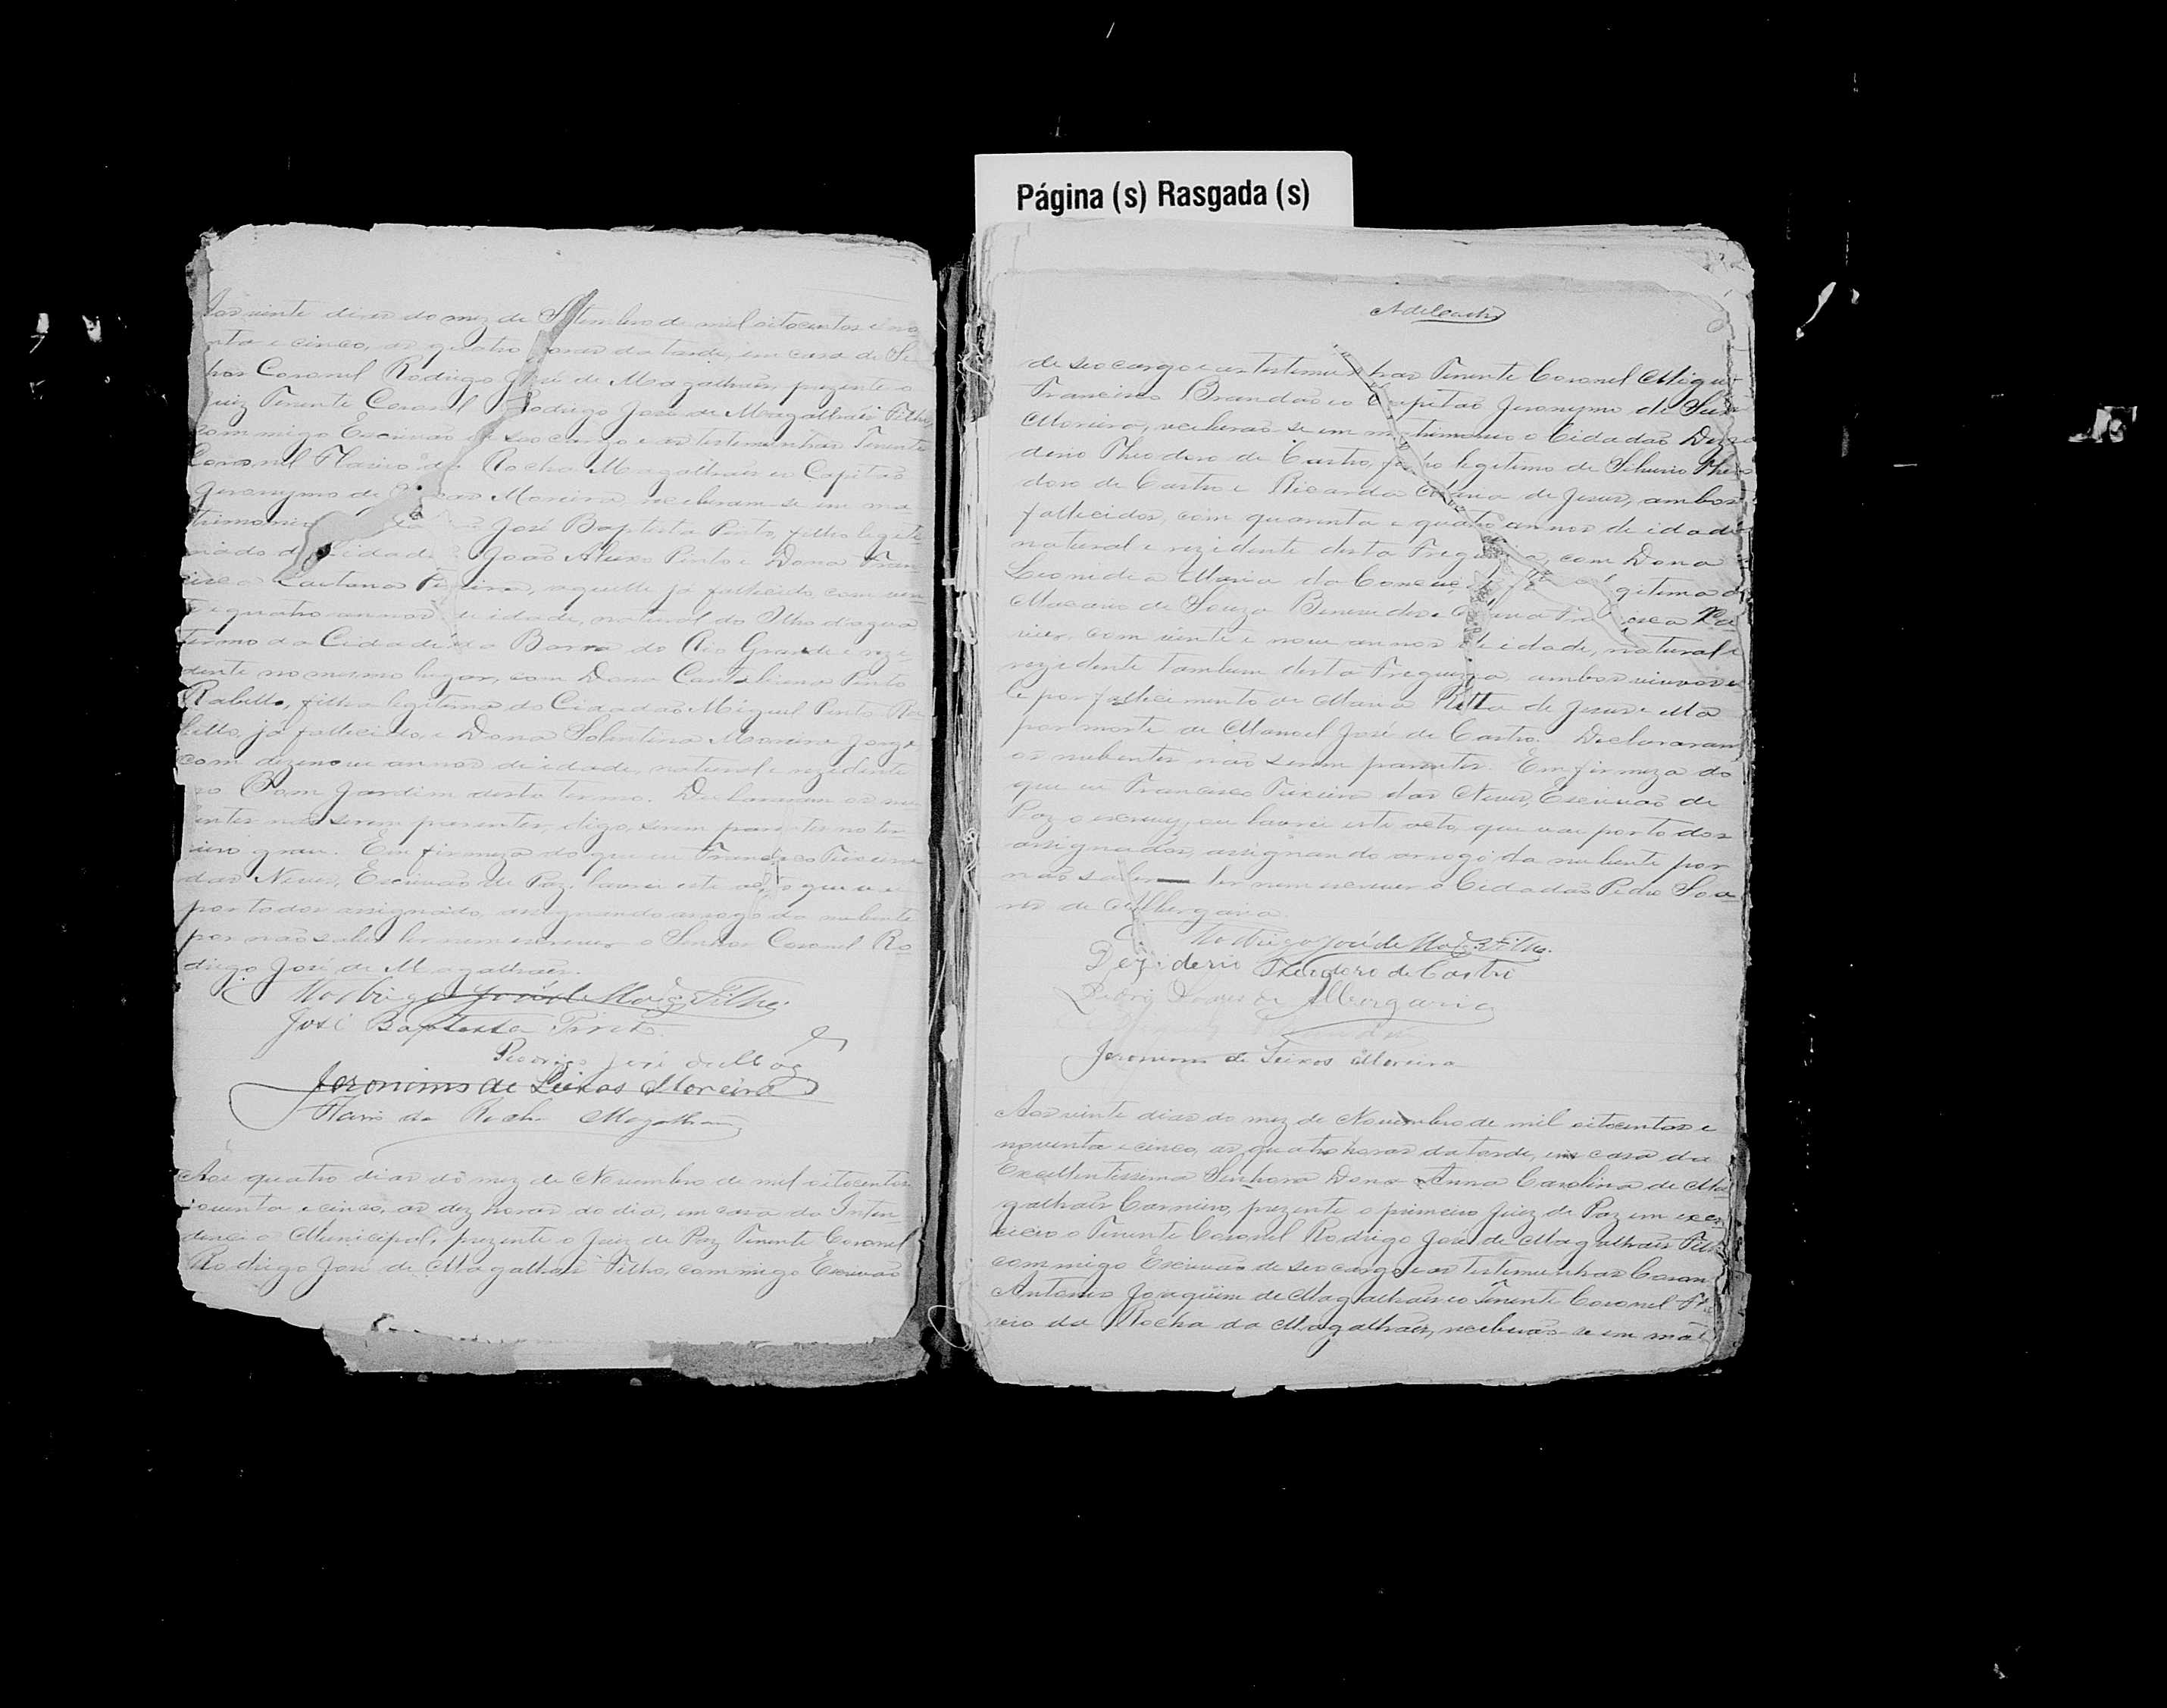 Página (s) Rasgada (s)
Aos vinte dias do mez de Setembro de mil oitocentos e no
nta e cinco, as quatro horas da tarde, em casa do Se
nhor Coronel Rodrigo José de Magalhães, prezente o
Juiz Tenente Coronel Rodrigo José de Magalhães Filho,
commigo Escrivão de seo cargo e as testemunhas Tenente
Coronel Flavio da Rocha Magalhães e o Capitão
Jeronymo de Moreira, receberam-se em ma
trimonio José Baptista Pinto, filho legiti
mado do Cidadão João Aleixo Pinto e Dona Fran
cisca Caetana Pereira, aquelle já fallecido, com vin
te quatro annos de idade, natural do Olho d'agua
termo da Cidade da Barra do Rio Grande e rezi
dente no mesmo lugar, com Dona Pinto
Rabello, filha legitima do Cidadão Miguel Pinto Ra
bello, já fallecido, e Dona Moreira Jorge
com dezenove annos de idade, natural e rezidente
no Bom Jardim deste termo. Declararam os nu
bentes não serem parentes, digo, serem parentes no ter
ceiro grau. Em firmeza do que eu Francisco Teixeira
das Neves, Escrivão de Paz, lavrei este acto que vai
por todos assignado, assignando arrogo da nubente
por não saber ler nem escrever o Senhor Coronel Ro
drigo José de Magalhães.
Rodrigo José de Mag.es Filho
José Baptista Pinto
Rodrigo José de Mag
Jeronimo de Seixas Moreira
Flavio da Rocha Magalhães
Aos quatro dias do mez de Novembro de mil oitocentos
noventa e cinco, as dez horas do dia, em casa da Inten
dencia Municipal, prezente o Juiz de Paz Tenente Coronel
Rodrigo José de Magalhães Filho, commigo Escrivão
de seo cargo e as testemunhas Tenente Coronel Miguel
Francisco Brandão e o Capitão Jeronymo de
Moreira, receberão-se em matrimonio o Cidadão Dezi
derio Theodoro de Castro, filho legitimo de Silverio Theo
doro de Castro e Ricarda Maria de Jesus, ambos
fallecidos, com quarenta e quatro annos de idade
natural e rezidente desta Freguezia, com Dona
Leonidia Maria da Conceição, filha legitima de
Macario de Souza Benevides e
com vinte e nove annos de idade, natural e
rezidente tambem desta Freguezia, ambos viuvos
le por fallecimento de Maria Ritta de Jesus e ella
por morte de Manoel José de Castro. Declararam
os nubentes não serem parentes. Em firmeza do
que eu Francisco Teixeira das Neves, Escrivão de
Paz o escrevy, eu lavrei este acto, que vai por todos
assignados, assignando arrogo da nubente por
não saber ler nem escrever o Cidadão Pedro Soa
res de Albergaria.
Rodrigo José de Mag.es Filho.
Dezidério Theodoro de Castro
Pedro Soares de Albergaria
Jeronimo de Seixas Moreira
Aos vinte dias do mez de Novembro de mil oitocentos e
noventa e cinco, as quatro horas da tarde, em casa da
Excellentissima Senhora Dona Anna Carolina de Ma
galhães Carneiro, prezente o primeiro Juiz de Paz em exer
cicio o Tenente Coronel Rodrigo José de Magalhães Filho
commigo Escrivão de seo cargo e as testemunhas Coron
Antonio Joaquim de Magalhães e o Tenente Coronel Fla
vio da Rocha da Magalhães, receberão-se em mat